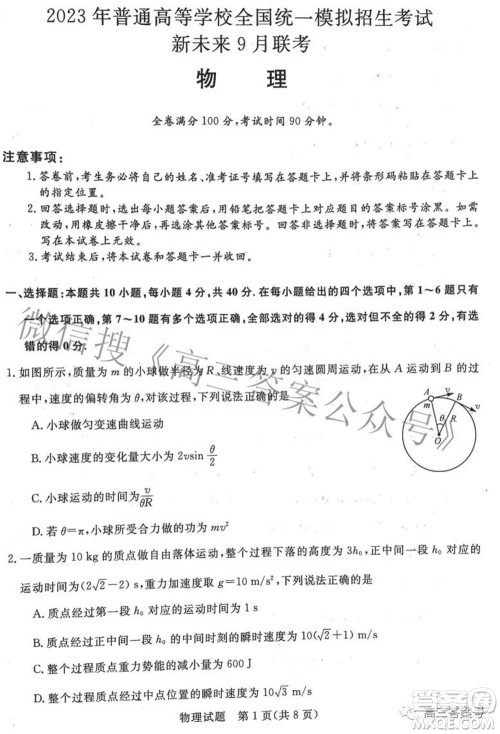 2023年普通高等学校全国统一模拟招生考试
新未来9月联考
物 理
全卷满分100分,考试时间90分钟。
注意事项:
1.答卷前,考生务必将自己的姓名、准考证号填写在答题卡上,并将条形码粘贴在答题卡上
的指定位置。
2.回答选择题时,选出答案后,用铅笔把答题卡上对应题目的答案标号涂黑。如需
改动,用橡皮擦干净后,再选涂其他答案标号。回答非选择题时,将答案写在答题卡上。
写在本试卷上无效。
3.考试结束后,将本试卷和答题卡一并收回。
一、选择题:本题共10小题,每小题4分,共40分。在每小题给出的四个选项中,第1~6题只
有一个选项正确,第7~10题有多个选项正确,全部选对的得4分,选对但不全的得2分,有选
错的得0分。
1.如图所示,质量为m的小球做半径为R、线速度为v的匀速圆周运动,在从A运动到B的过
程中,速度的偏转角为θ,对该过程,下列说法正确的是
A.小球做匀变速曲线运动
B.小球速度的变化量大小为2vsin θ/2
C.小球运动的时间为 v/θR
D.若θ=π,小球所受合力的功为mv²
A
B
v
m
R
θ
O
2.一质量为10 kg的质点做自由落体运动,整个过程下落的高度为3h₀,正中间一段h₀对应的
运动时间为(2√2-2) s,重力加速度取g=10 m/s²,下列说法正确的是
A.质点经过第一段h₀的时间为1 s
B.质点经过正中间一段h₀的中间时刻的瞬时速度为10(√2+1) m/s
C.整个过程质点重力势能的减小量为600 J
D.整个过程质点的平均速度为10√3 m/s
物理试题 第1页(共8页)
微信搜《高三答案公众号》
高三答案号